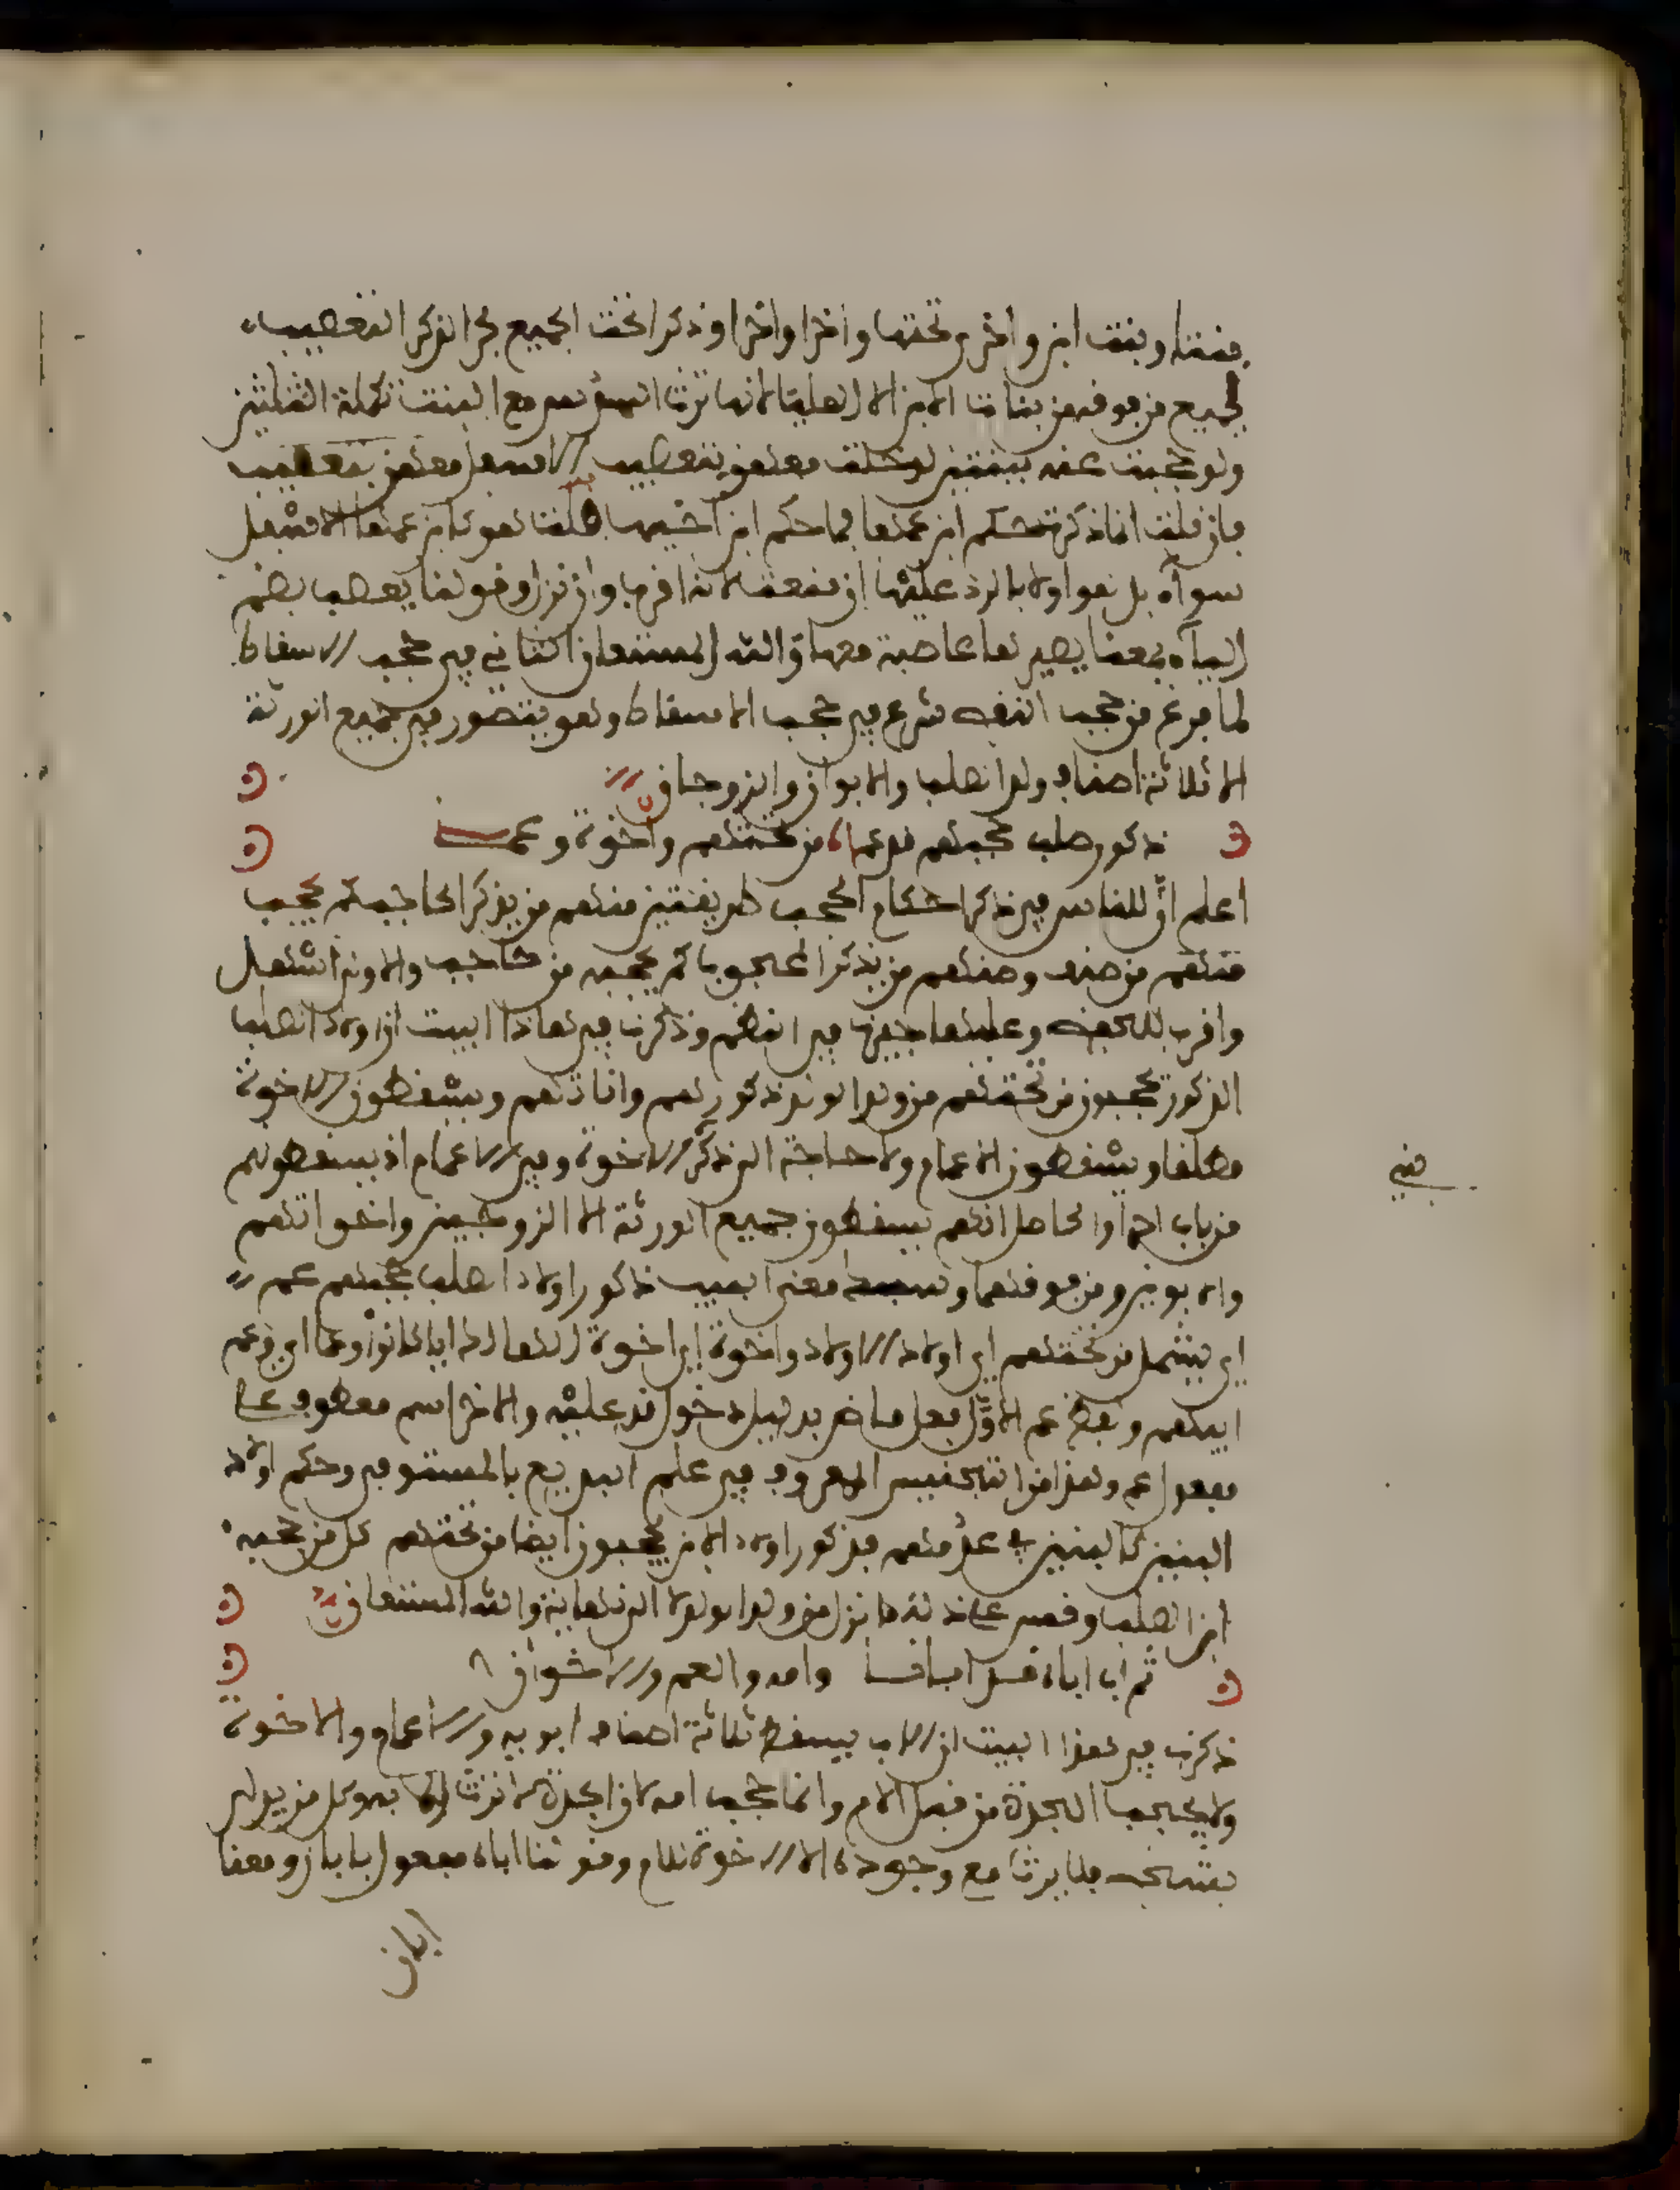 بنتا وبنت ابن واخرى تحتها واخرا واخرا وذكرا تحت الجميع جر الذكر التعصيب
لجميع من فوقه من بنات الابن الا العليا لانها ترث السدس مع البنت تكملة الثلثين
ولو حجبت عنه ببنتين لدخلت معهن بتعصيب الاسفل معهن بتعصيب
فان قلت انما ذكرت حكم ابن عمها فما حكم ابن اخيها قلت هو كابن عمها الاسفل
سواء بل هو اولا بالرد عليها ان نفعت لانه اقرب وان نزل وقولنا يعصب بضم
الياء بمعنا يصير لها عاصبة معها والله المستعان الثاني في حجب الاسقاط
لما فرغ من حجب النقص شرع في حجب الاسقاط وهو يتصور في جميع الورثة
الا ثلاثة اصناف ولد الصلب والابوان والزوجان
ذكور صلب حجبهم من تحتهم واخوة وعم
اعلم ان للناس في ذكر احكام الحجب طريقتين منهم من يذكر الحاجب كم يحجب
منهم من صنف ومنهم من يذكر المحجوب كم يحجبه من حاجب والاولا اسهل
واقرب للحفظ وعليها جيت في النظم وذكرت في هاذا البيت ان اولاد الصلب
الذكور يحجبون من تحتهم من ولد الولد ذكورهم واناثهم ويسقطون الاخوة
مطلقا ويسقطون الاعمام ولا حاجة الى ذكر الاخوة وفي الاعمام اذ يسقطونهم
من باب احرا والحاصل انهم يسقطون جميع الورثة الا الزوجين واخواتهم
والابوين ومن فوقهما وبسط معنى البيت ذكور اولاد الصلب حجبهم عم
اي يشمل من تحتهم اي اولاد الاولاد واخوة اي اخوة الهالك ايا كانوا وعما اي وعم
ابيهم ولفظ عم الاول فعل ماض بدليل دخول قد عليه والاخر اسم معطوف على
مفعول عم وهذا من التجنيس المعروف في علم البديع بالمستوفى وحكم اولاد
البنين كالبنين في عدمهم فذكور اولاد الابن يحجبون ايضا من تحتهم كل من يحجبه
ابن الصلب وقس على ذلك ما نزل من ولد الولد الى النهاية والله المستعان
ثم اب اباه وامه والعم والاخوان
ذكرت في هذا البيت ان الاب يسقط ثلاثة اصناف ابويه والاعمام والاخوة
ولا يحجب الجدة من قبل الام وانما حجب امه لان الجدة لا ترث وكل من يدلي
بشخص فلا يرث مع وجوده الا الاخوة للام وقولنا اباه مفعول بابان ومعنا
ابان